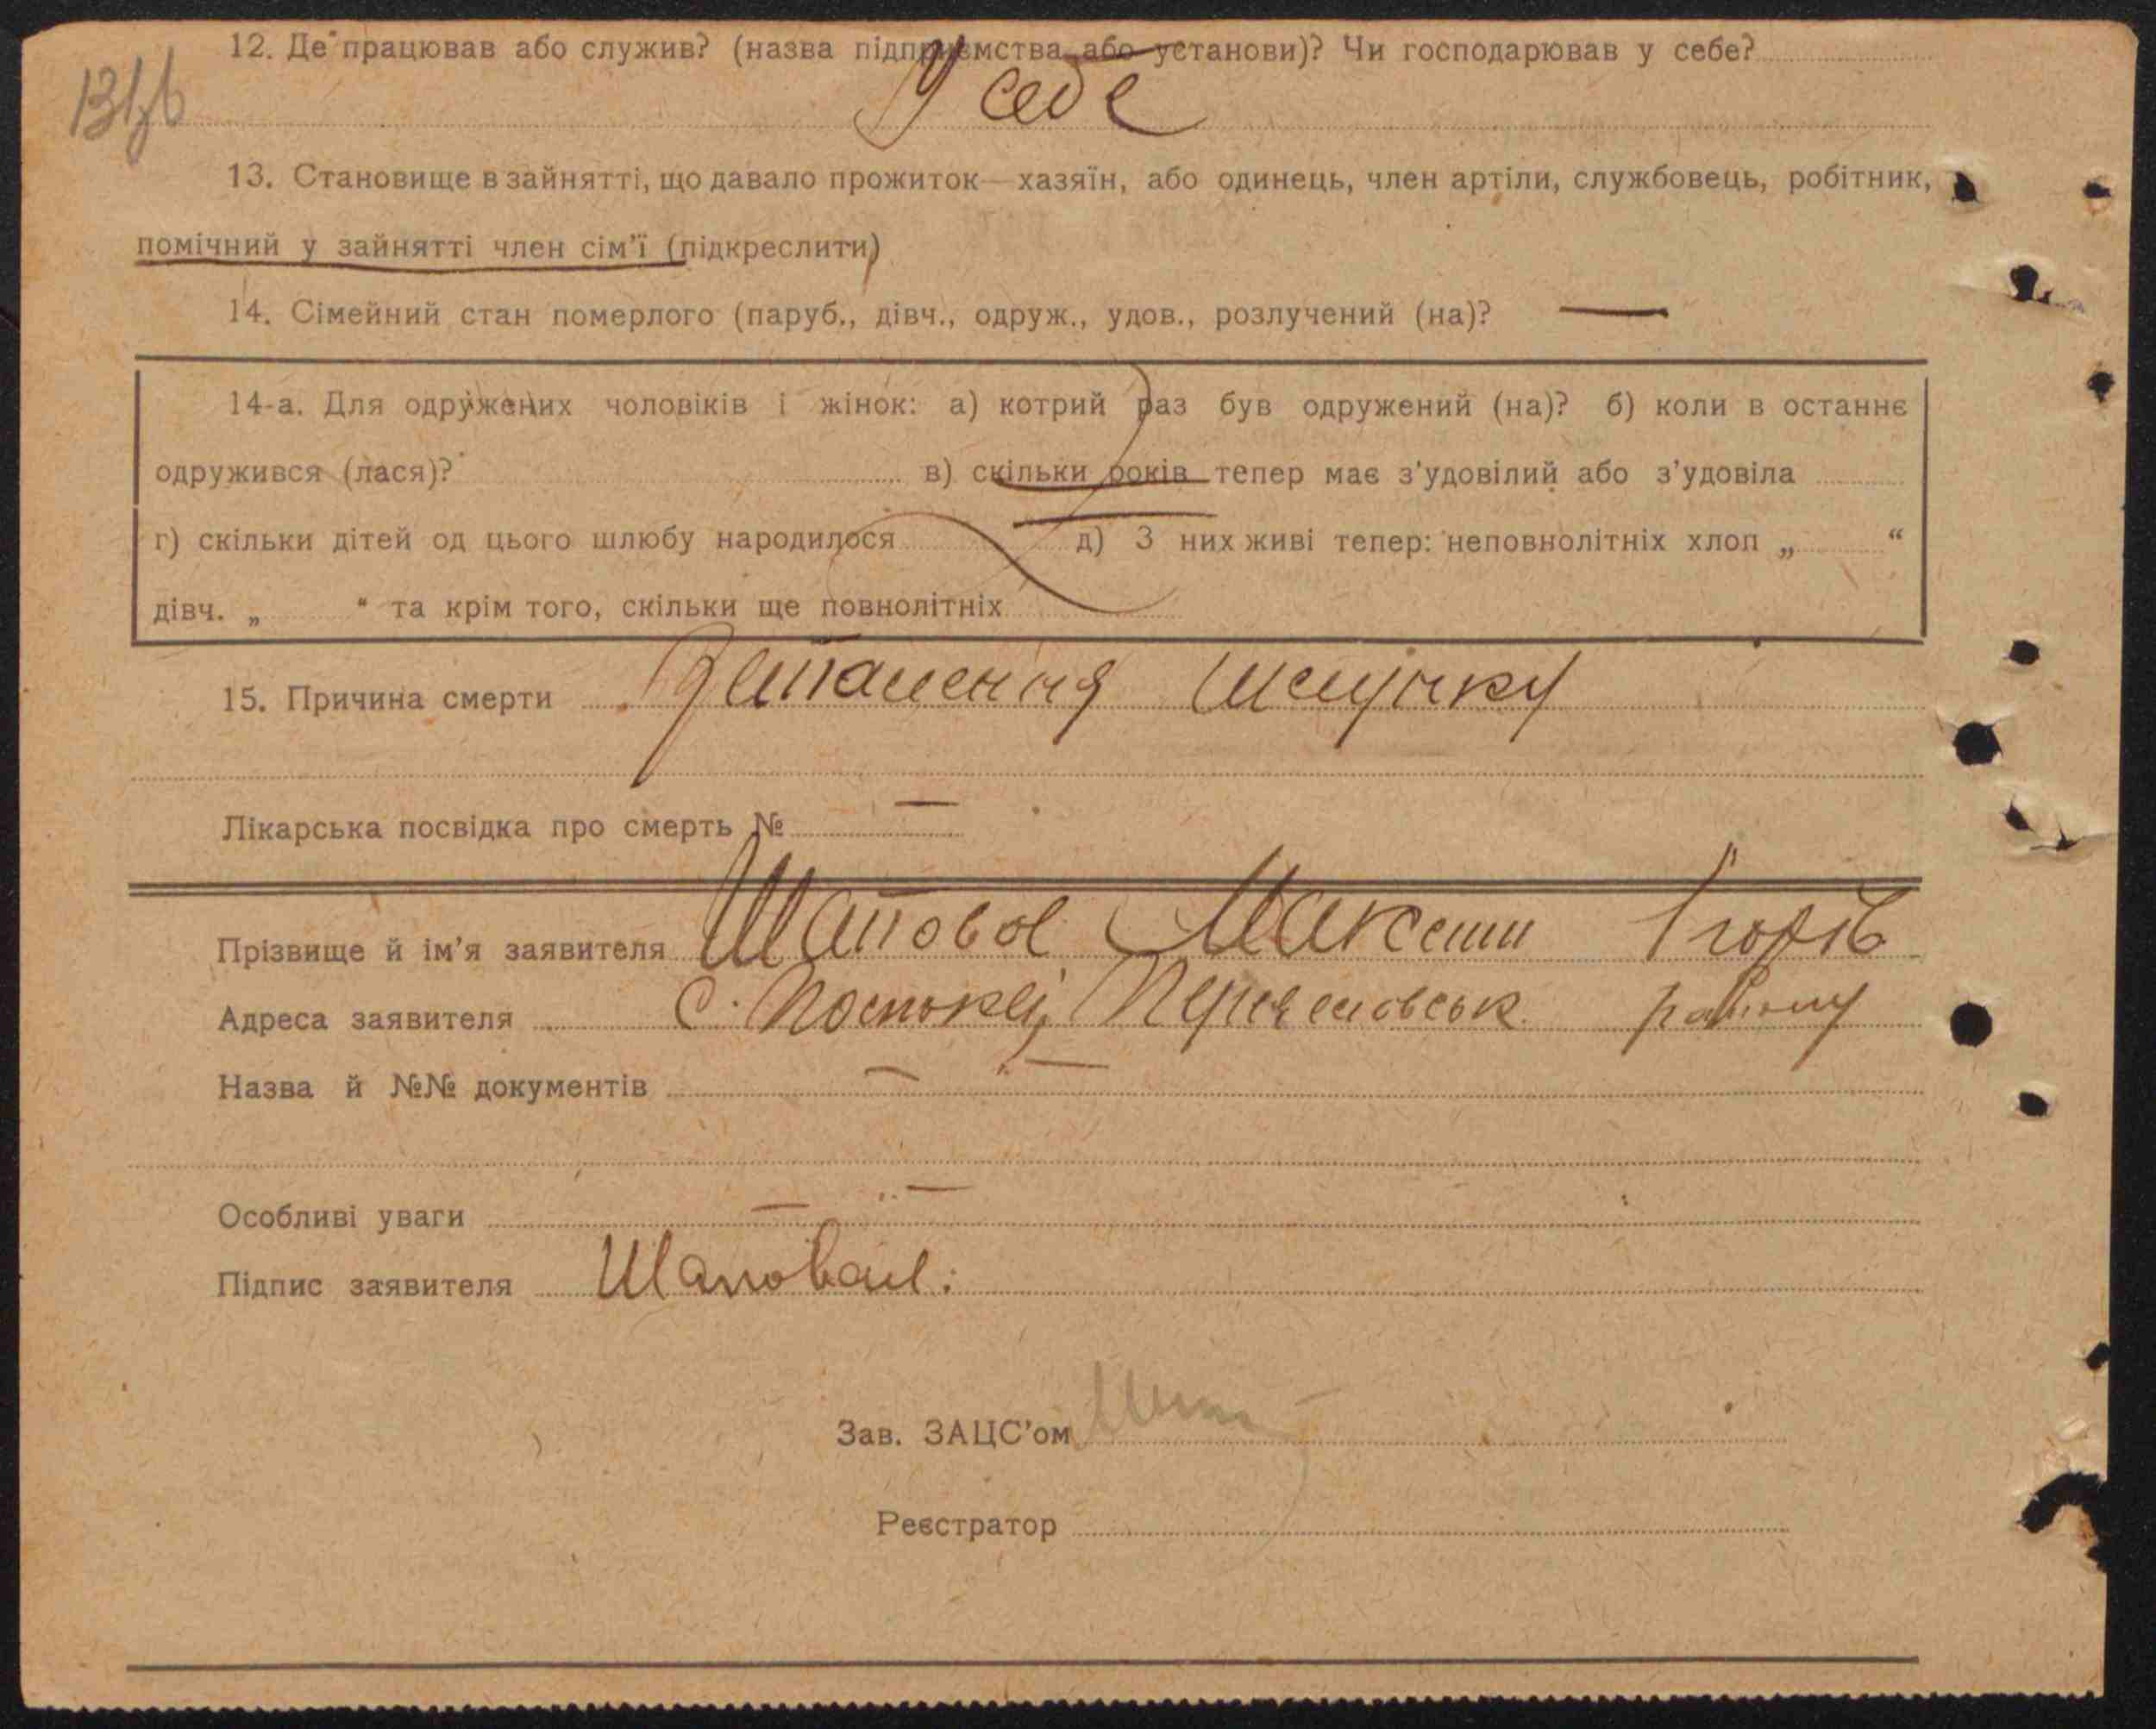 12. Де працював або служив? (назва підприємства або установи)? Чи господарював у себе?
У себе
13. Становище в зайнятті, що давало прожиток — хазяїн, або одинець, член артіли, службовець, робітник,
помічний у зайнятті член сім'ї (підкреслити)
14. Сімейний стан померлого (паруб., дівч., одруж., удов., розлучений (на)? —
14-а. Для одружених чоловіків і жінок: а) котрий раз був одружений (на)? б) коли в останнє
одружився (лася)? в) скільки років тепер має з'удовілий або з'удовіла
г) скільки дітей од цього шлюбу народилося д) З них живі тепер: неповнолітніх хлоп „ “
дівч. „ “ та крім того, скільки ще повнолітніх
15. Причина смерти шлунку
Лікарська посвідка про смерть № —
Прізвище й ім'я заявителя Шаповал Максим
Адреса заявителя с. району
Назва й №№ документів — —
Особливі уваги — —
Підпис заявителя Шаповал.
Зав. ЗАЦС'ом
Реєстратор